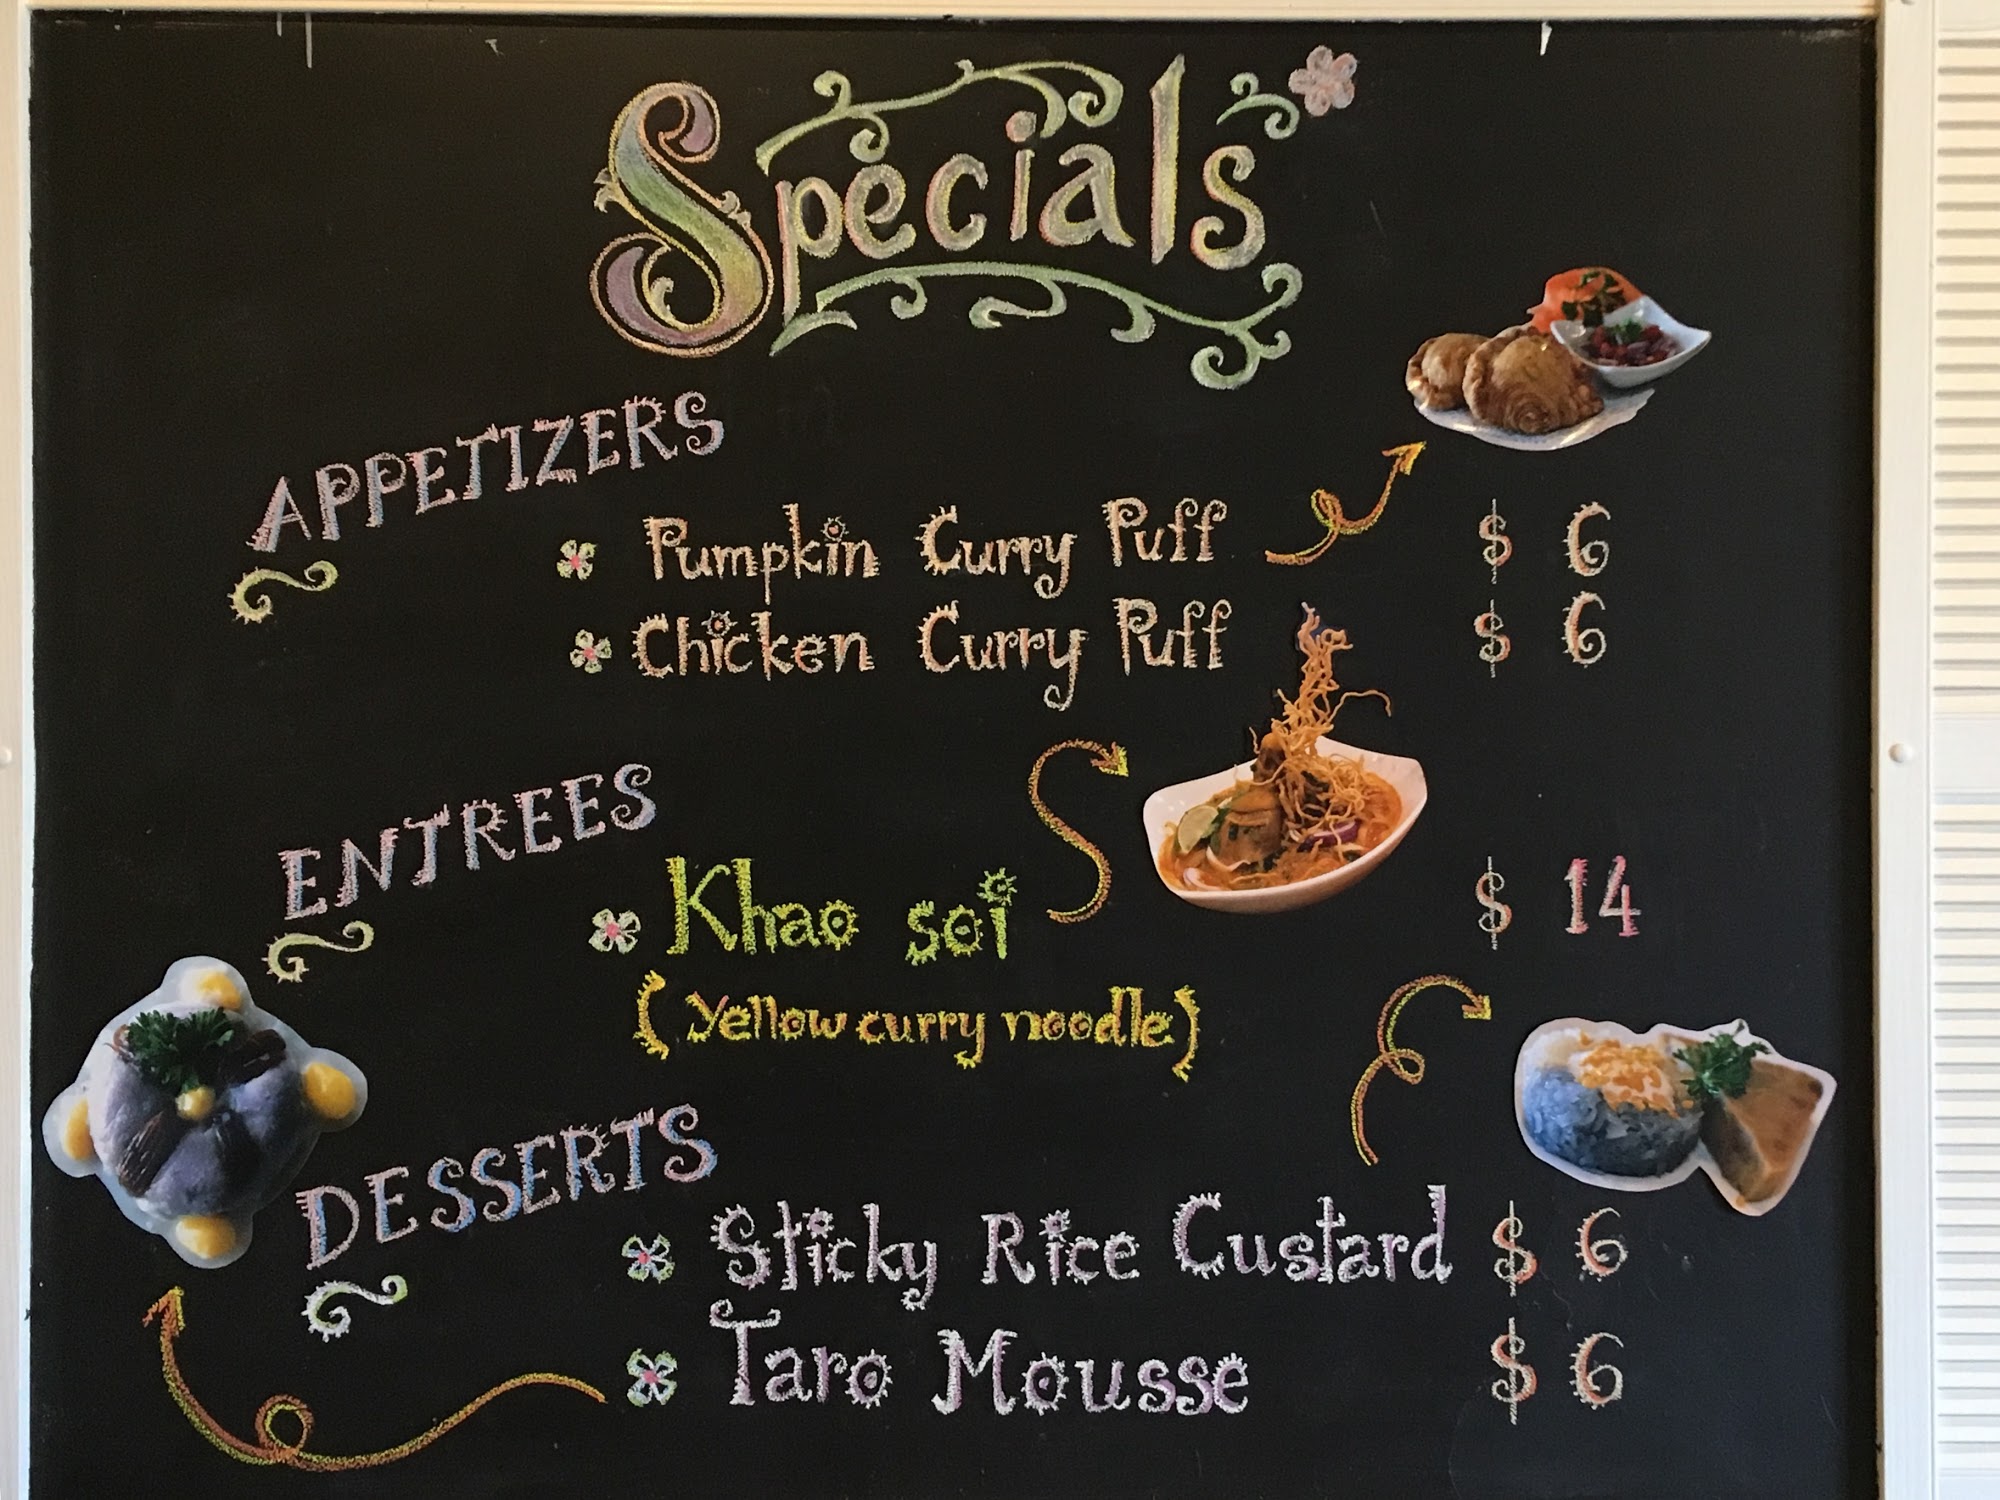 Specials
APPETIZERS
Pumpkin Curry Puff $ 6
Chicken Curry Puff $ 6
ENTREES
Khao soi $ 14
(Yellow curry noodle)
DESSERTS
Sticky Rice Custard $ 6
Taro Mousse $ 6